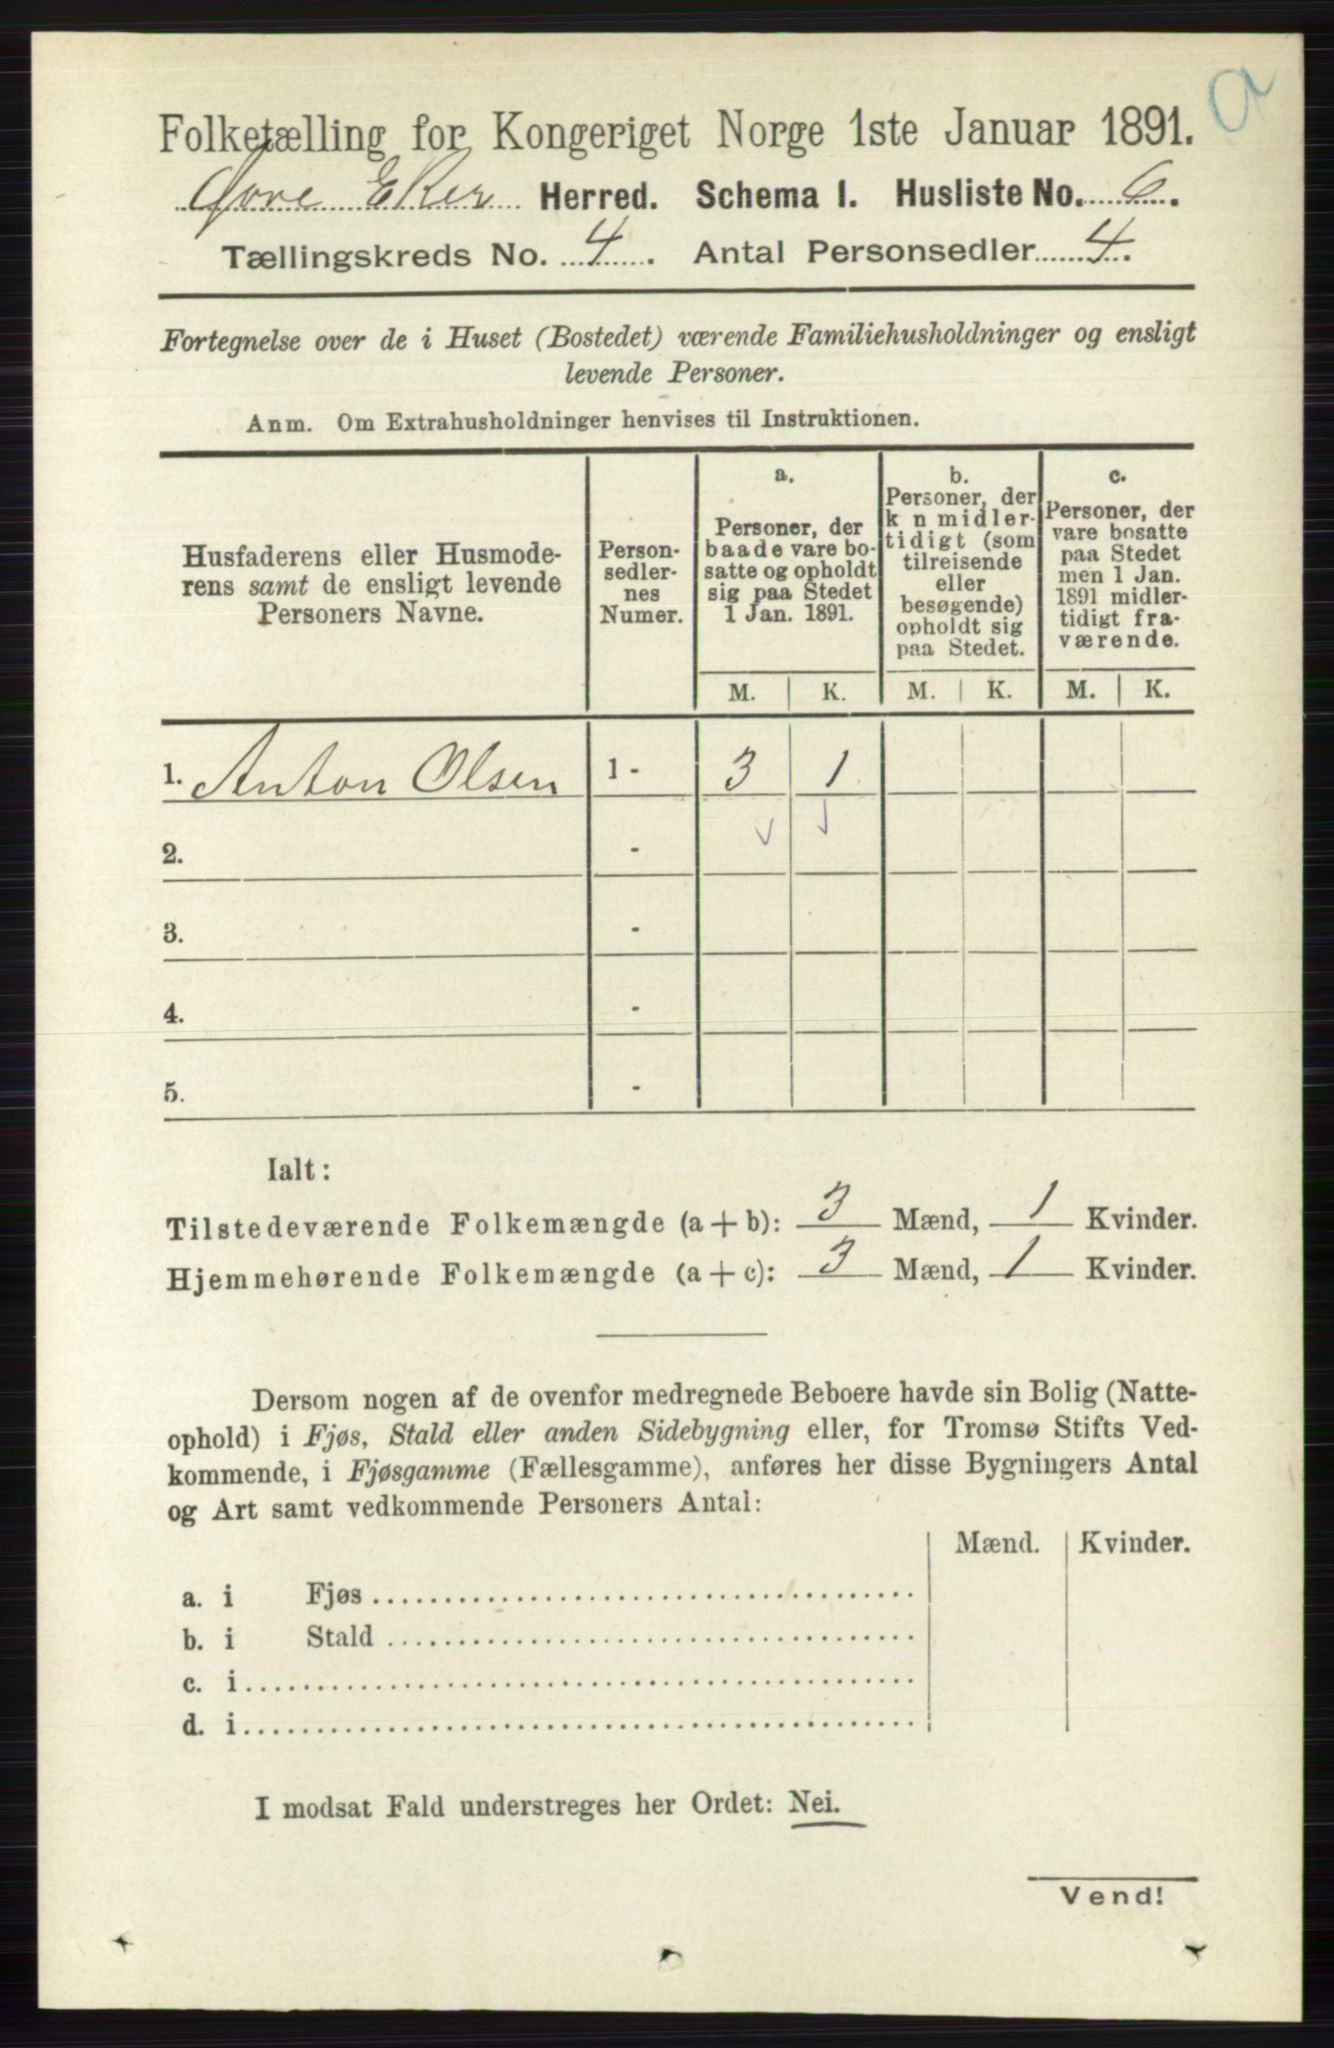 a
Folketælling for Kongeriget Norge 1ste Januar 1891.
Øvre Eker Herred. Schema I. Husliste No. 6.
Tællingskreds No. 4. Antal Personsedler 4.
Fortegnelse over de i Huset (Bostedet) værende Familiehusholdninger og ensligt
levende Personer.
Anm. Om Extrahusholdninger henvises til Instruktionen.
Husfaderens eller Husmode-
rens samt de ensligt levende
Personers Navne.
Person-
sedler-
nes
Numer.
a.
Personer, der
baade vare bo-
satte og opholdt
sig paa Stedet
1 Jan. 1891.
b.
Personer, der
k n midler-
tidigt (som
tilreisende
eller
besøgende)
opholdt sig
paa Stedet.
c.
Personer, der
vare bosatte
paa Stedet
men 1 Jan.
1891 midler-
tidigt fra-
værende.
M. K. M. K. M. K.
1. Anton Olsen 1 - 3 1
2. -
3. -
4. -
5. -
Ialt:
Tilstedeværende Folkemængde (a + b): 3 Mænd, 1 Kvinder.
Hjemmehørende Folkemængde (a + c): 3 Mænd, 1 Kvinder.
Dersom nogen af de ovenfor medregnede Beboere havde sin Bolig (Natte-
ophold) i Fjøs, Stald eller anden Sidebygning eller, for Tromsø Stifts Ved-
kommende, i Fjøsgamme (Fællesgamme), anføres her disse Bygningers Antal
og Art samt vedkommende Personers Antal:
Mænd. Kvinder.
a. i Fjøs
b. i Stald
c. i
d. i
I modsat Fald understreges her Ordet: Nei.
Vend!